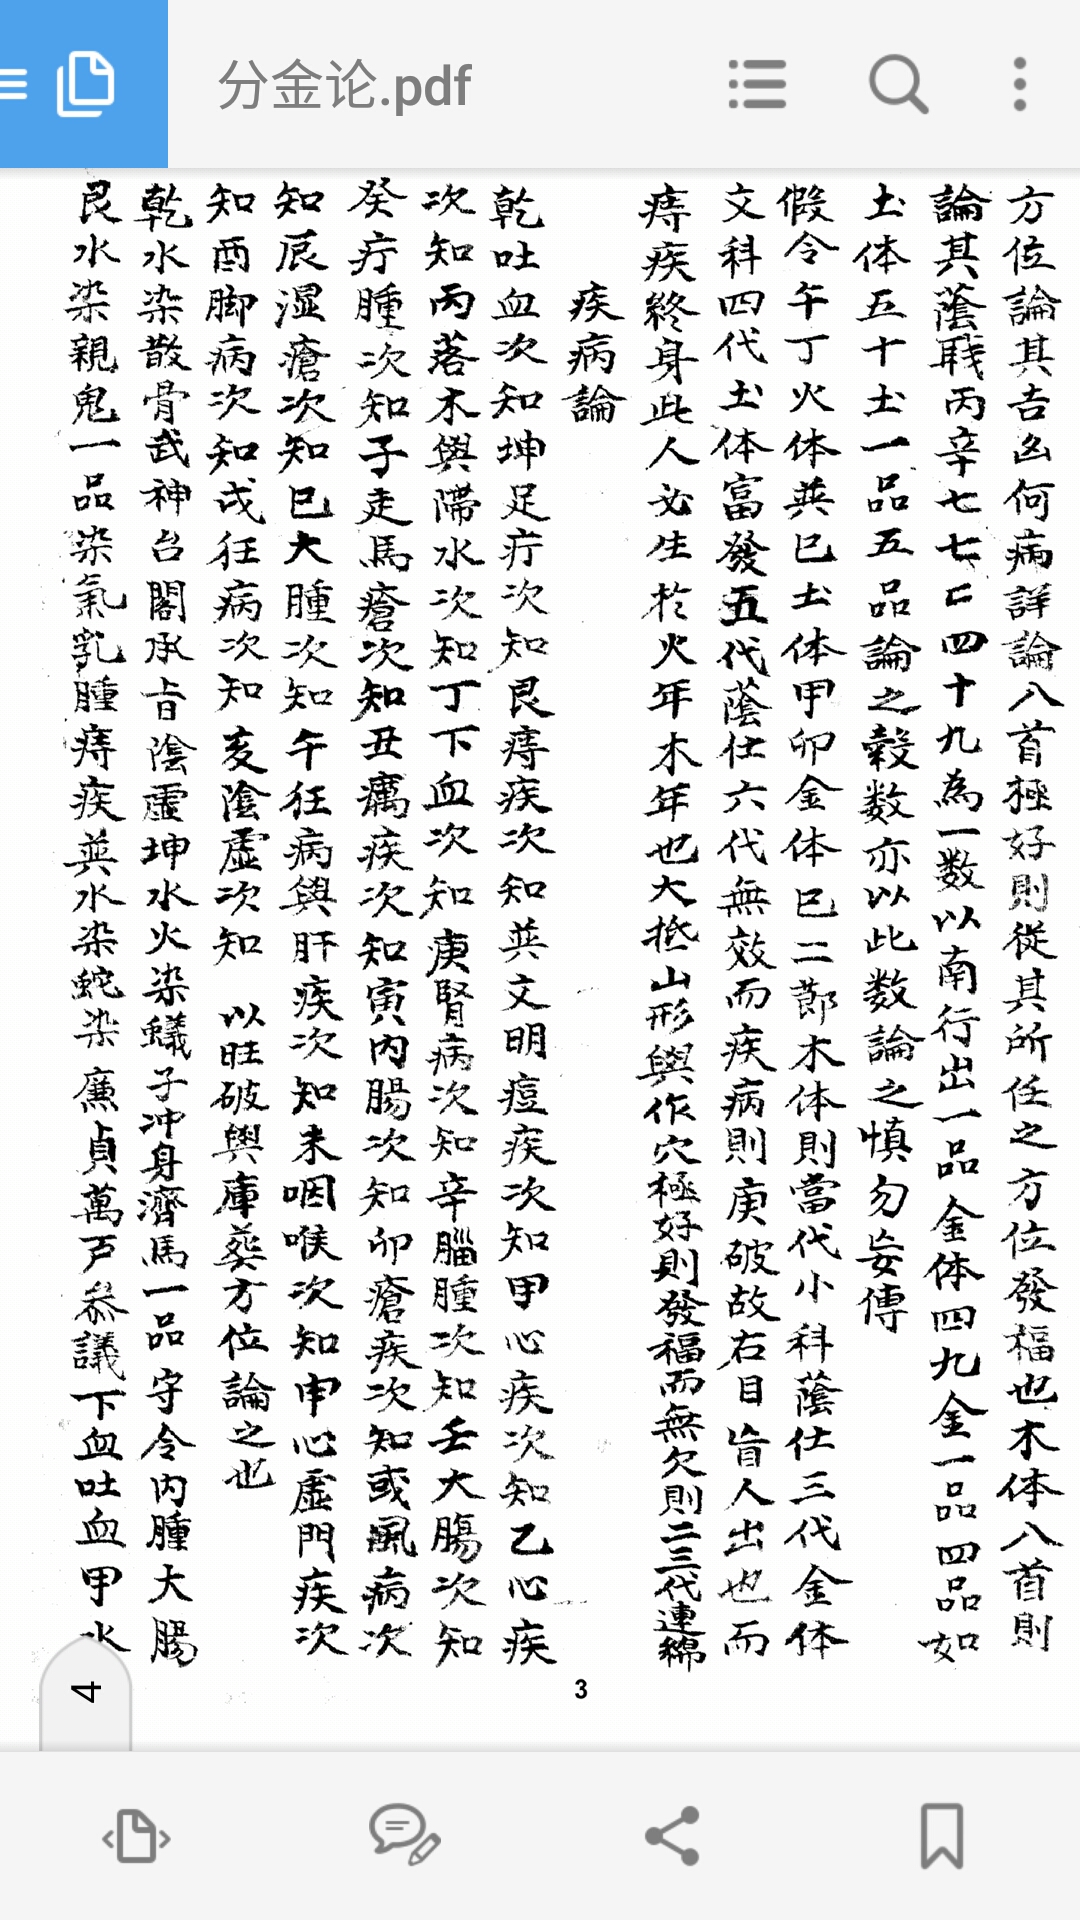 分金论.pdf
方位論其吉凶何病詳論八首極好則從其所任之方位發福也木体八首則
論其蔭戰丙辛七七四十九為一数以南行出一品金体四九金一品四品如
土体五十土一品五品論之穀数亦以此数論之慎勿妄傳
假令午丁火体巽巳土体甲卯金体巳二節木体則當代小科蔭仕三代金体
文科四代土体富發五代蔭仕六代無效而疾病則庚破故右目盲人出也而
痔疾終身此人必生於火年木年也大抵山形與作穴極好則發福而無欠則二三代連綿
疾病論
乾吐血次知坤足疔次知艮痔疾次知巽文明痘疾次知甲心疾次知乙心疾
次知丙落木與滯水次知丁下血次知庚腎病次知辛腦腫次知壬大腸次知
癸疔腫次知子走馬瘡次知丑癘疾次知寅內腸次知卯瘡疾次知或風病次
知辰湿瘡次知巳大腫次知午狂病與肝疾次知未咽喉次知申心虛門疾次
知酉脚病次知戌狂病次知亥陰虛次知 以旺破與庫葬方位論之也
乾水染散骨武神台閣承旨陰虛坤水火染蟻子冲身濟馬一品守令内腫大腸
艮水染親鬼一品染氣乳腫痔疾巽水染蛇染廉貞萬戸叅議下血吐血甲水
3
4